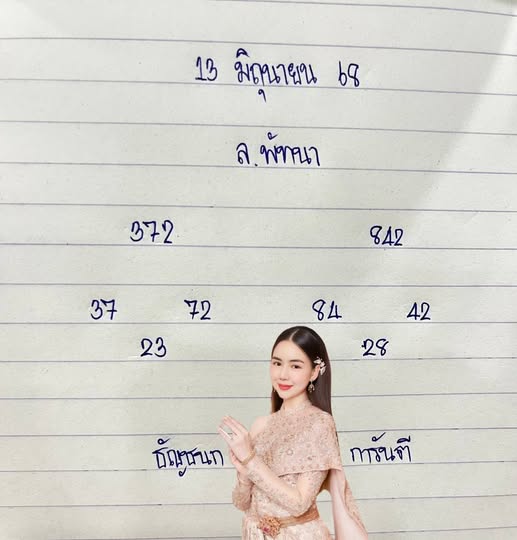 13 มิถุนายน 68
ล.พัฑนา
372 842
37 72 84 42
23 28
ธัญชนก การันตี